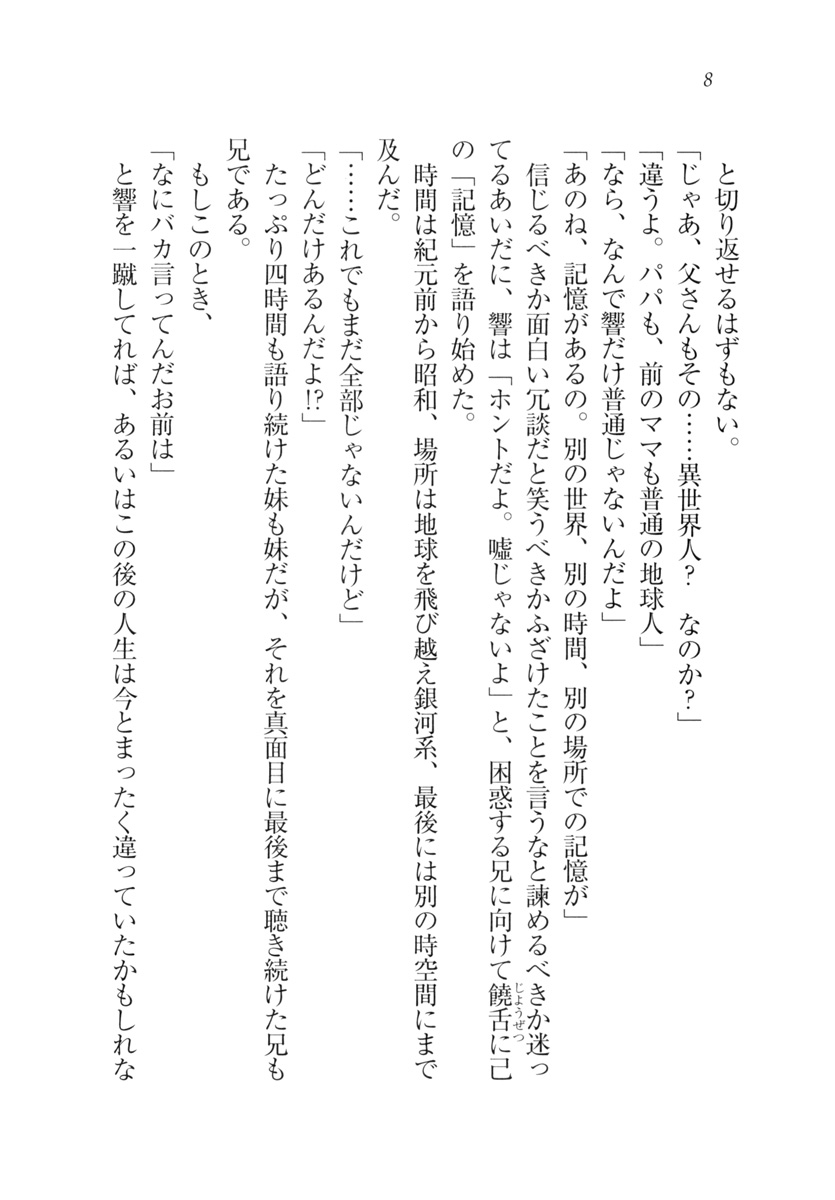 8
と切り返せるはずもない。
「じゃあ、父さんもその……異世界人？　なのか？」
「違うよ。パパも、前のママも普通の地球人」
「なら、なんで響だけ普通じゃないんだよ」
「あのね、記憶があるの。別の世界、別の時間、別の場所での記憶が」
信じるべきか面白い冗談だと笑うべきかふざけたことを言うなと諫めるべきか迷っ
てるあいだに、響は「ホントだよ。嘘じゃないよ」と、困惑する兄に向けて饒舌に己
じょうぜつ
の「記憶」を語り始めた。
時間は紀元前から昭和、場所は地球を飛び越え銀河系、最後には別の時空間にまで
及んだ。
「……これでもまだ全部じゃないんだけど」
「どんだけあるんだよ!?」
たっぷり四時間も語り続けた妹も妹だが、それを真面目に最後まで聴き続けた兄も
兄である。
もしこのとき、
「なにバカ言ってんだお前は」
と響を一蹴してれば、あるいはこの後の人生は今とまったく違っていたかもしれな